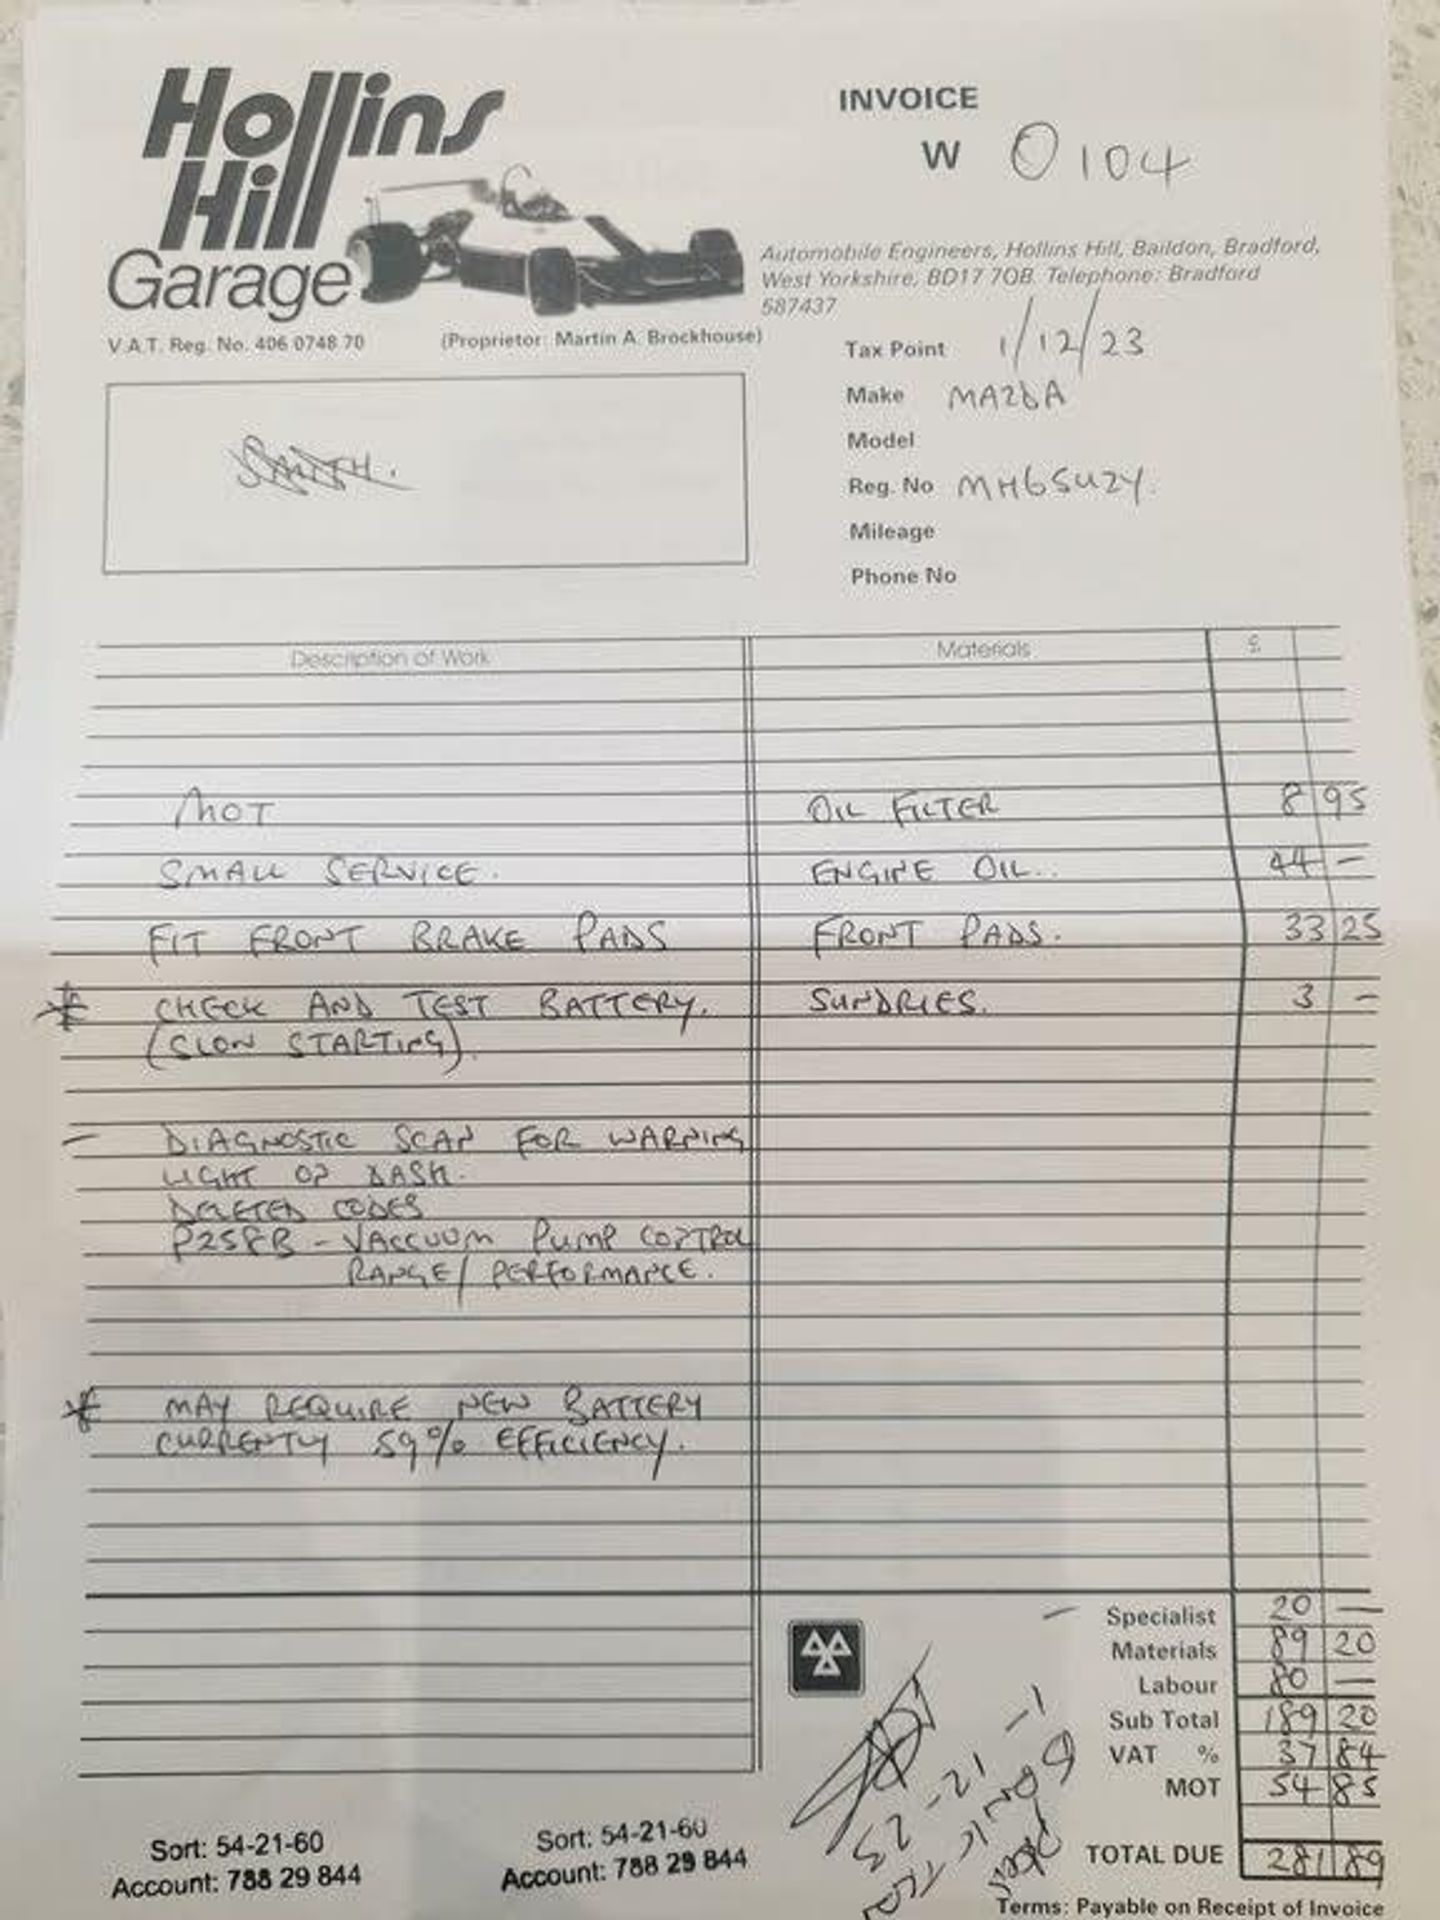 Hollins
Hill
Garage
V.A.T. Reg. No. 406 0748 70
(Proprietor: Martin A. Brockhouse)
INVOICE
W 0104
Automobile Engineers, Hollins Hill, Baildon, Bradford,
West Yorkshire, BD17 7QB. Telephone: Bradford
587437
Tax Point 1/12/23
Make MAZDA
Model
Reg. No MH65UZY.
Mileage
Phone No
SMITH.
Description of Work Materials £
MOT OIL FILTER 8 95
SMALL SERVICE. ENGINE OIL.. 44 —
FIT FRONT BRAKE PADS FRONT PADS. 33 25
* CHECK AND TEST BATTERY. SUNDRIES. 3 —
(SLOW STARTING).
— DIAGNOSTIC SCAN FOR WARNING
LIGHT ON DASH.
DELETED CODES
P258B - VACCUUM PUMP CONTROL
RANGE/ PERFORMANCE.
* MAY REQUIRE NEW BATTERY
CURRENTLY 59% EFFICIENCY.
— Specialist 20 —
Materials 89 20
Labour 80 —
Sub Total 189 20
VAT % 37 84
MOT 54 85
TOTAL DUE 281 89
Terms: Payable on Receipt of Invoice
1-12-23
Sort: 54-21-60
Account: 788 29 844
Sort: 54-21-60
Account: 788 29 844